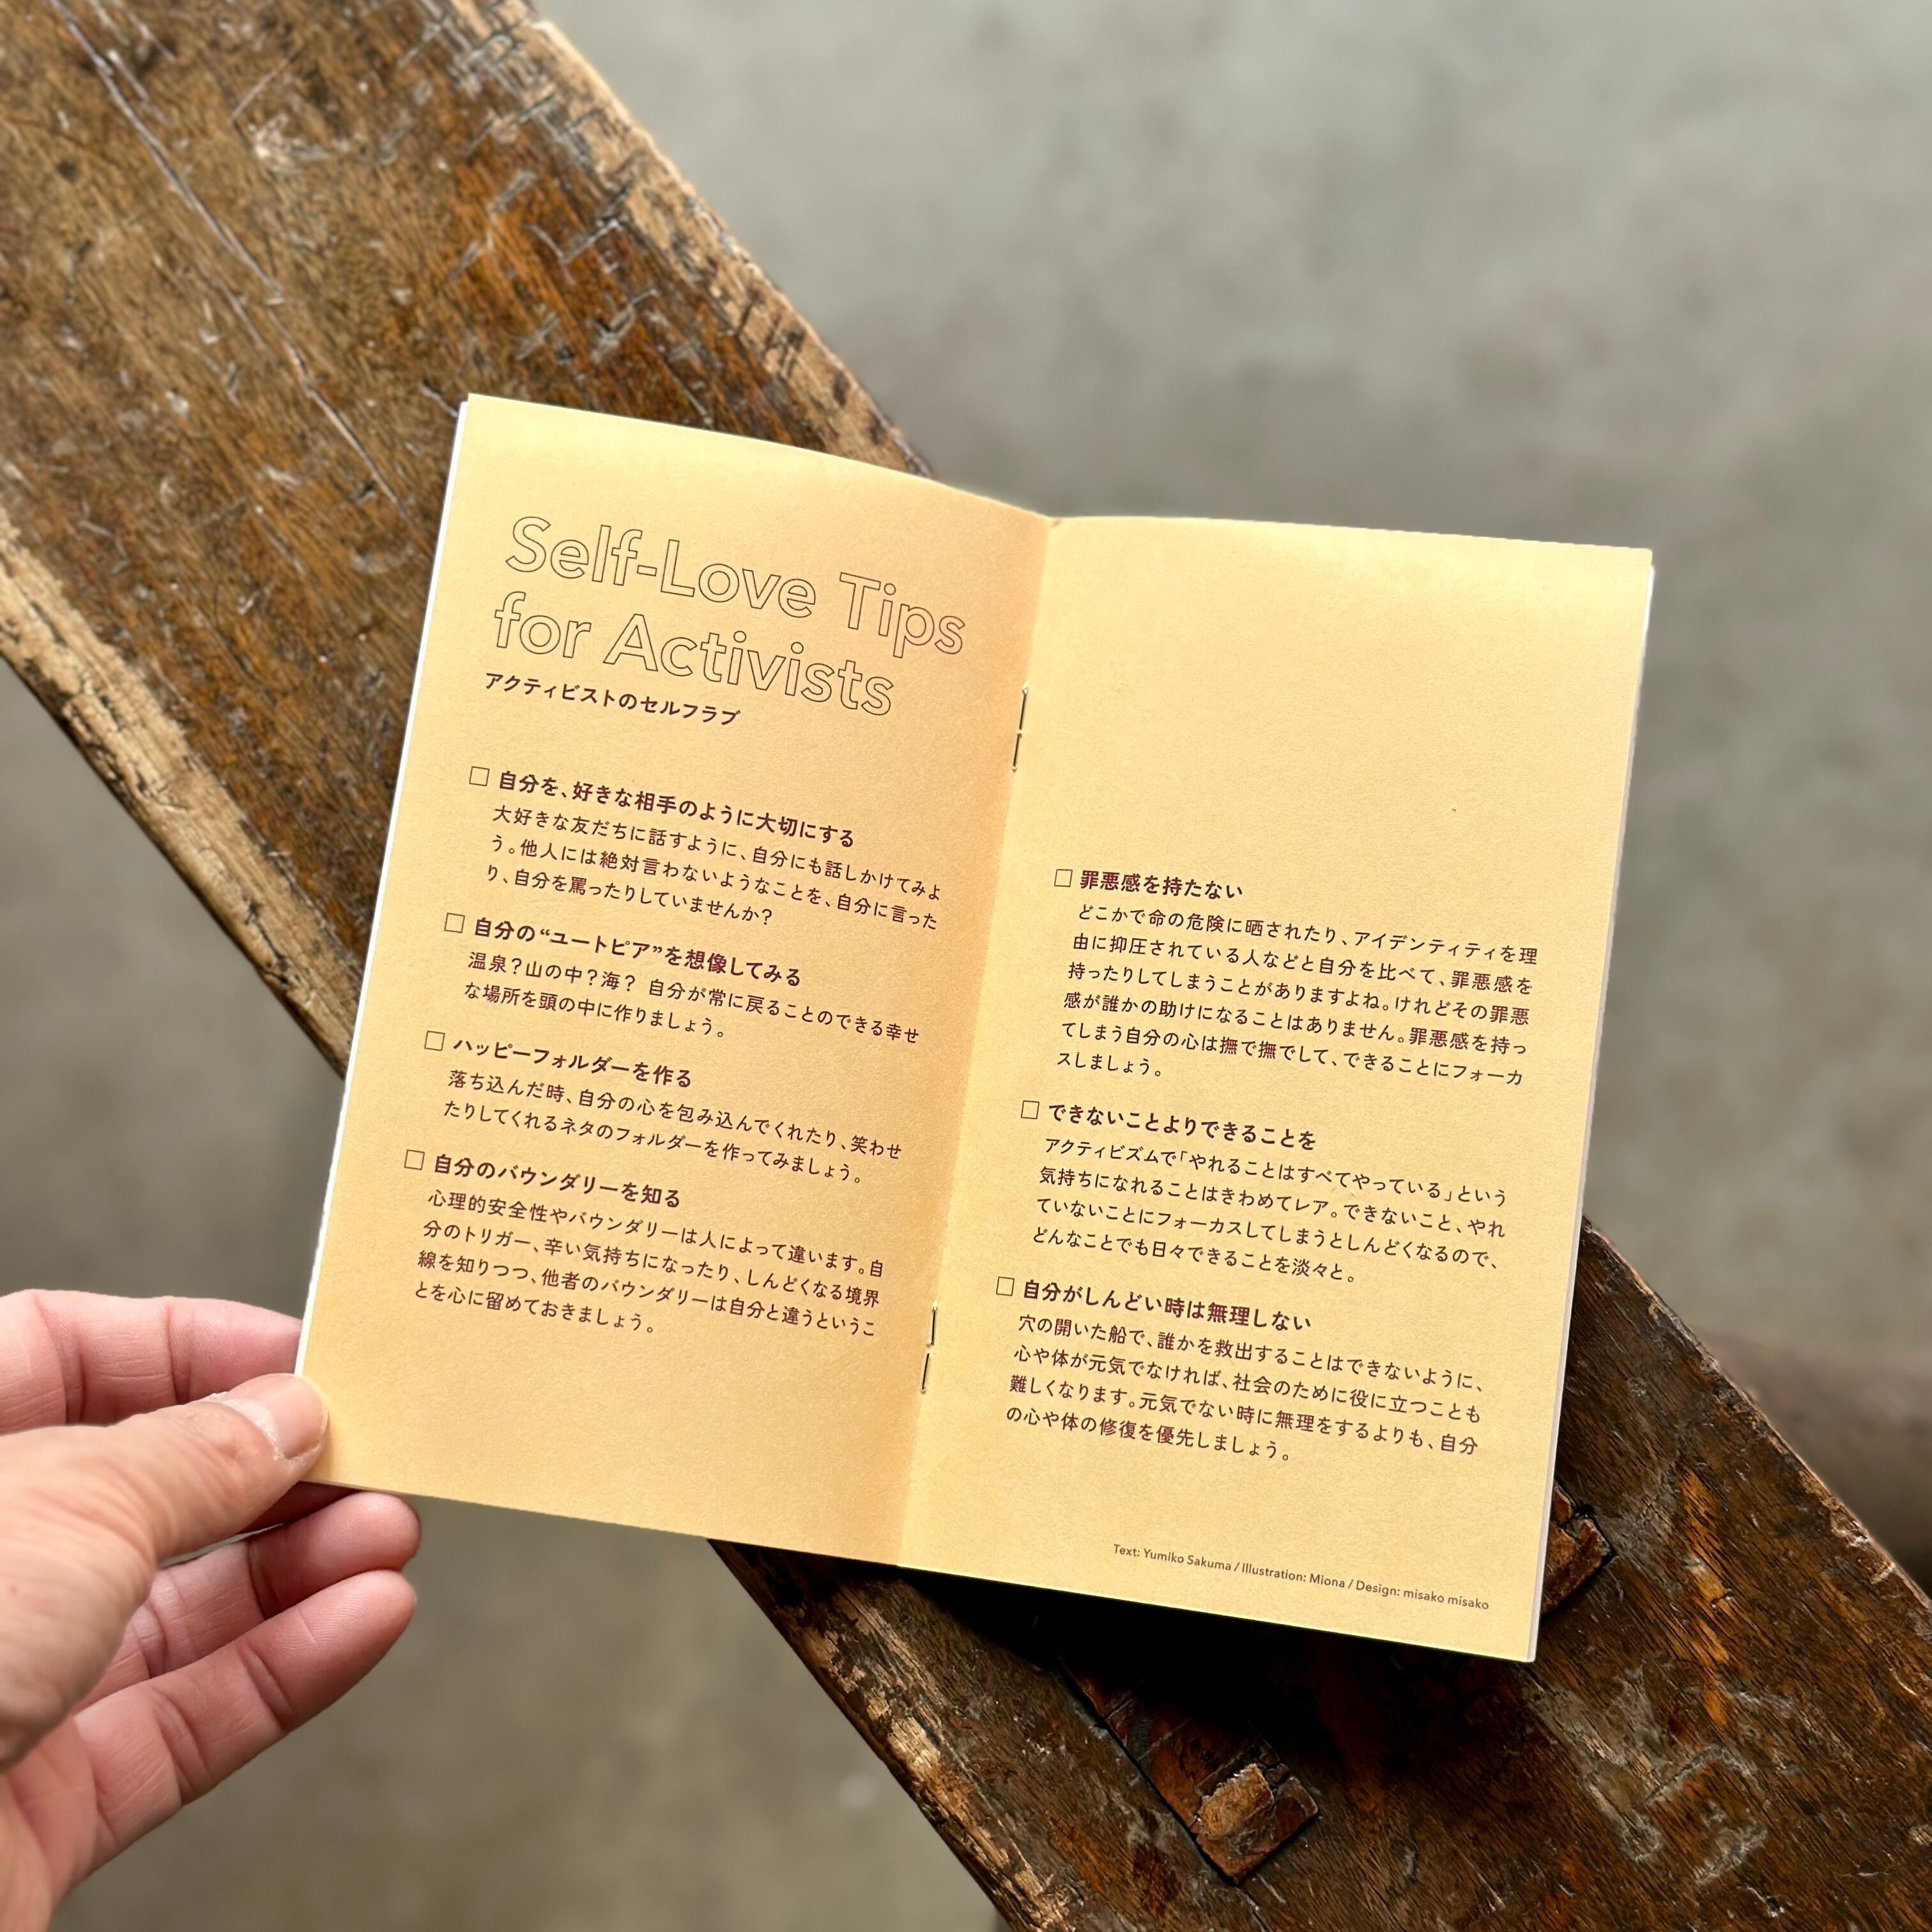 Self-Love Tips
for Activists
アクティビストのセルフラブ
□ 自分を、好きな相手のように大切にする
大好きな友だちに話すように、自分にも話しかけてみよ
う。他人には絶対言わないようなことを、自分に言った
り、自分を罵ったりしていませんか？
□ 自分の“ユートピア”を想像してみる
温泉？山の中？海？ 自分が常に戻ることのできる幸せ
な場所を頭の中に作りましょう。
□ ハッピーフォルダーを作る
落ち込んだ時、自分の心を包み込んでくれたり、笑わせ
たりしてくれるネタのフォルダーを作ってみましょう。
□ 自分のバウンダリーを知る
心理的安全性やバウンダリーは人によって違います。自
分のトリガー、辛い気持ちになったり、しんどくなる境界
線を知りつつ、他者のバウンダリーは自分と違うというこ
とを心に留めておきましょう。
□ 罪悪感を持たない
どこかで命の危険に晒されたり、アイデンティティを理
由に抑圧されている人などと自分を比べて、罪悪感を
持ったりしてしまうことがありますよね。けれどその罪悪
感が誰かの助けになることはありません。罪悪感を持っ
てしまう自分の心は撫で撫でして、できることにフォーカ
スしましょう。
□ できないことよりできることを
アクティビズムで「やれることはすべてやっている」という
気持ちになれることはきわめてレア。できないこと、やれ
ていないことにフォーカスしてしまうとしんどくなるので、
どんなことでも日々できることを淡々と。
□ 自分がしんどい時は無理しない
穴の開いた船で、誰かを救出することはできないように、
心や体が元気でなければ、社会のために役に立つことも
難しくなります。元気でない時に無理をするよりも、自分
の心や体の修復を優先しましょう。
Text: Yumiko Sakuma / Illustration: Miona / Design: misako misako